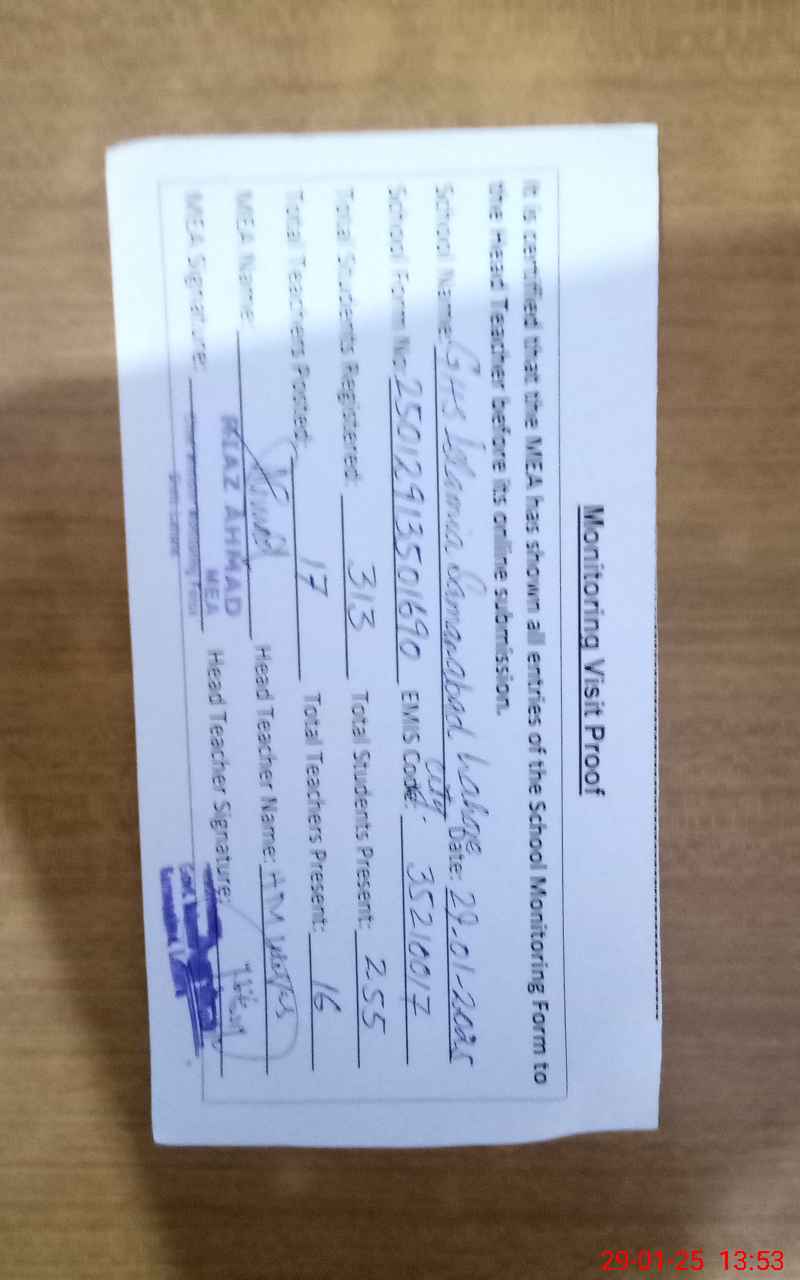 Monitoring Visit Proof
It is certified that the MEA has shown all entries of the School Monitoring Form to
the Head Teacher before its online submission.
School Name: GHS Islamia Samanabad Lahore City. Date: 29-01-2025
School Form No: 25012913501690 EMIS Code: 35210017
Total Students Registered: 313 Total Students Present: 255
Total Teachers Posted: 17 Total Teachers Present: 16
MEA Name: Head Teacher Name:
MEA Signature: Head Teacher Signature:
AHMAD
MEA
29-01-25 13:53